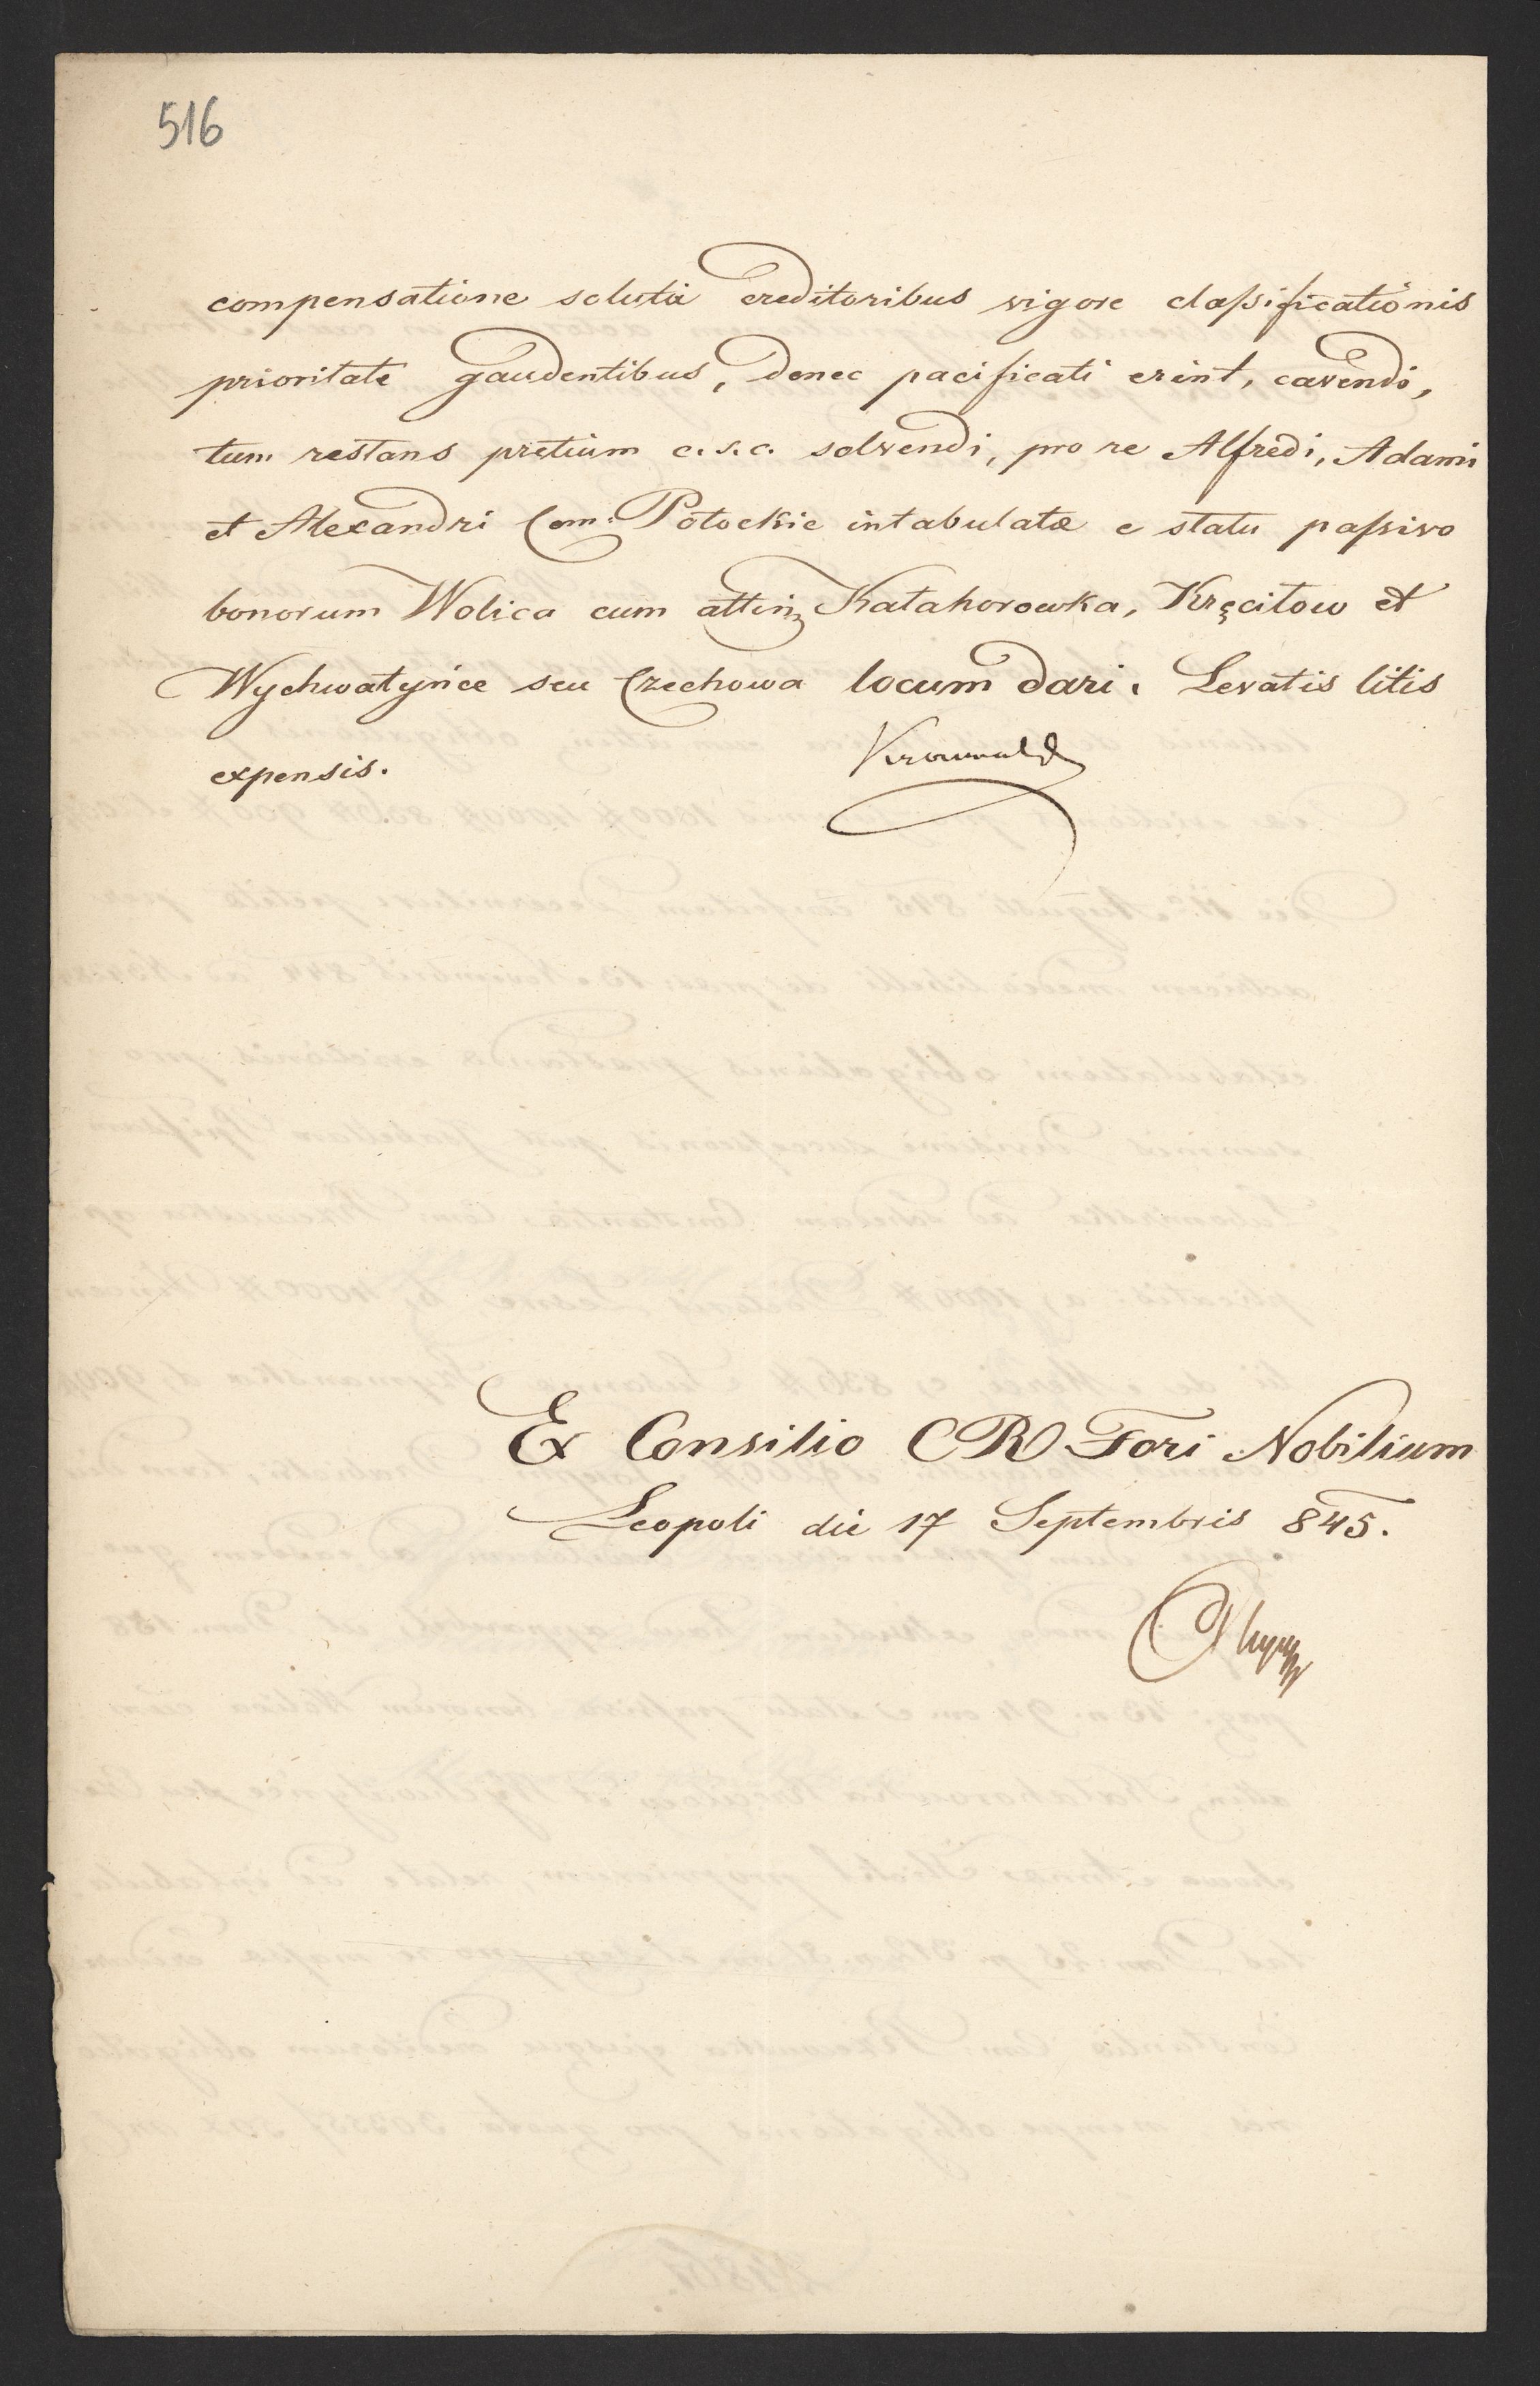 516
compensatione soluta creditoribus vigore classificationis
prioritate gaudentibus, donec pacificati erint, cavendi,
tum restans pretium c.s.c. solvendi, pro re Alfredi, Adami
et Alexandri Com: Potockie intabulatæ e statu passivo
bonorum Wolica cum attin Katahorowka, Kręcitow et
Wychwatyńce seu Czechowa locum dari. Levatis litis
expensis.
Ex Consilio CR Fori Nobilium
Leopoli die 17 Septembris 845.